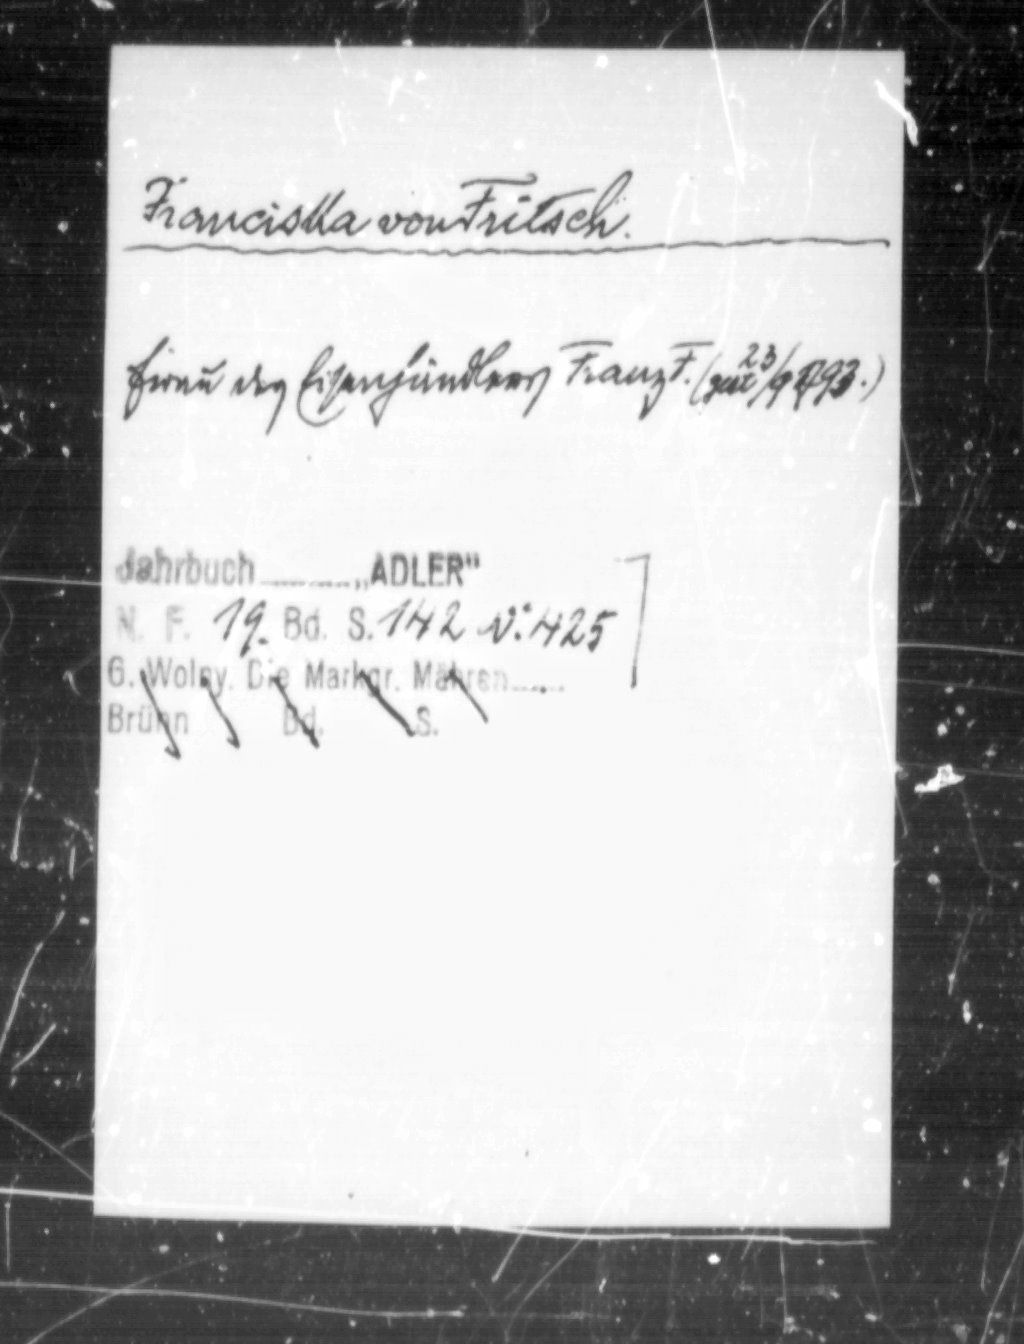 Franciska von Fritsch.
Frau des Eisenhändlers Franz F. (seit 23/9 1793.)
Jahrbuch „ADLER"
N. F. 19. Bd. S. 142 N: 425
6. Wolny. Die Markgr. Mähren
Brünn Bd. S.